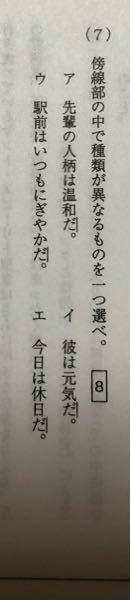 (7) 傍線部の中で種類が異なるものを一つ選べ。 8
ア 先輩の人柄は温和だ。 イ 彼は元気だ。
ウ 駅前はいつもにぎやかだ。 エ 今日は休日だ。